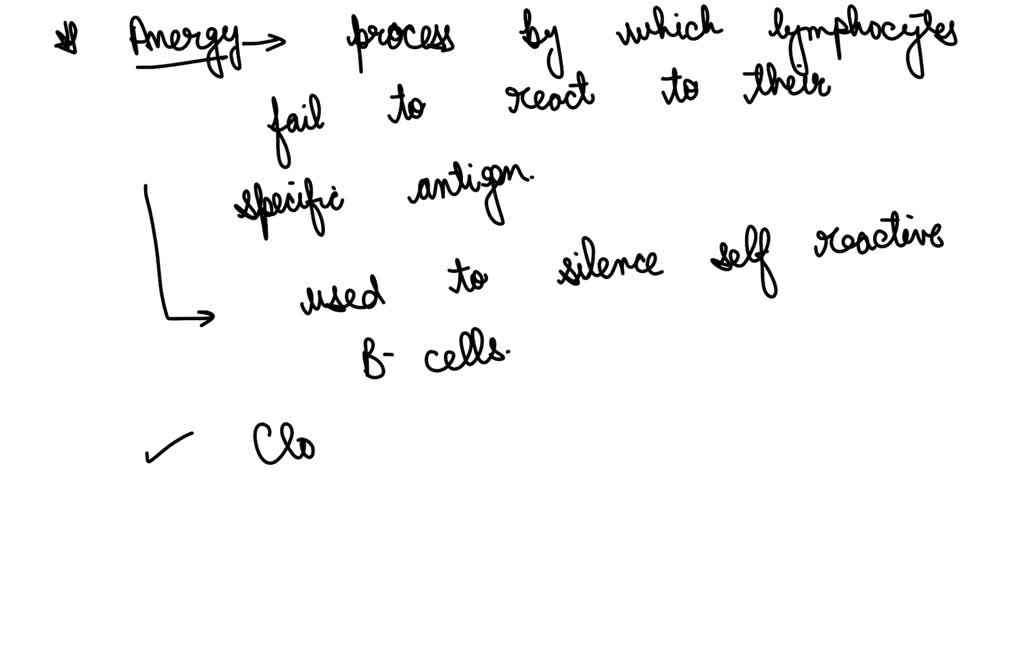 * Anergy → process by which lymphocytes
fail to react to their
specific antigen.
→ used to silence self reactive
B- cells.
✓ Clo